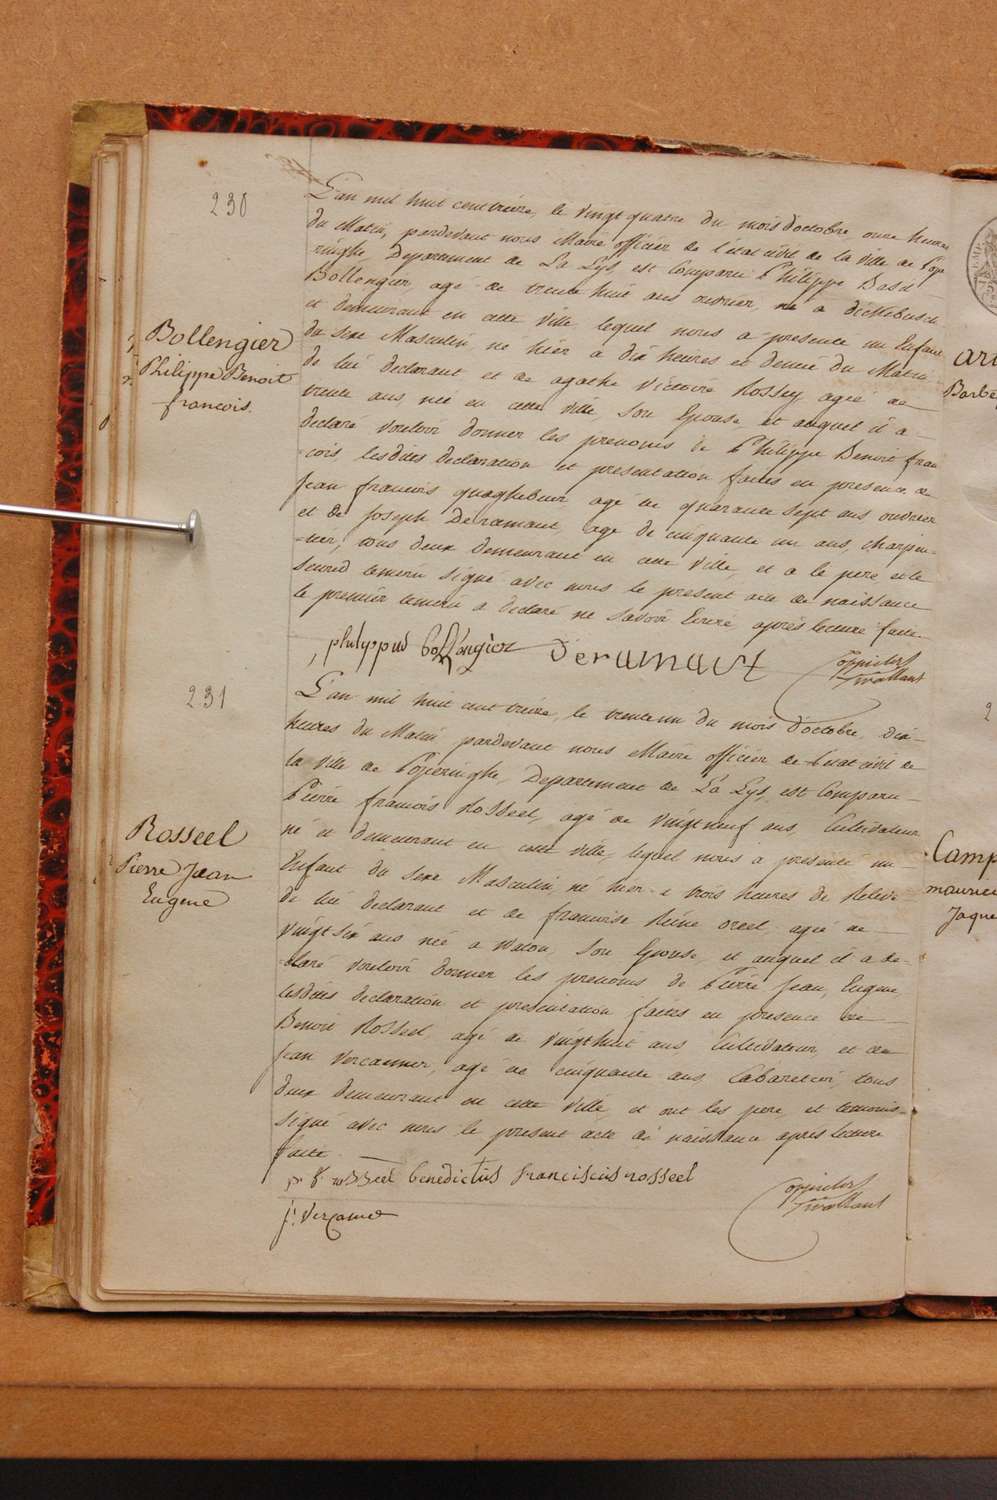 230
Bollengier
Philippe Benoit
francois.
L'an mil huit cent treize, le vingt quatre du mois d'octobre, onze heures
du Matin, pardevant nous Maire officier de l'état civil de la ville de Pope
ringhe, Departement de La Lys, est Comparu Philippe
Bollengier, agé de trente huit ans ouvrier, né a dickebusch
et demeurant en cette ville, lequel nous a presenté un Enfant
du sexe Masculin, né hier a dix heures et demie du Matin
de lui declarant et de agathe Victoire Rossey agée de
trente ans, née en cette ville, son Epouse, et auquel il a
declaré vouloir donner les prenoms de Philippe Benoit fran
-cois lesdites declaration et presentation faites en presence de
Jean francois quaghebeur agé de quarante sept ans ouvrier
et de Joseph Deramaut, agé de cinquante un ans, charpen-
-tier, tous deux demeurant en cette ville, et a le pere et le
second temoin signé avec nous le present acte de naissance
le premier temoin a declaré ne savoir Ecrire, après lecture faite
philippus bollengier Deramaut
231
Rosseel
Pierre Jean
Eugene
L'an mil huit cent treize, le trente un du mois d'octobre, dix
heures du Matin pardevant nous Maire officier de l'état civil de
la ville de Poperinghe, Departement de La Lys, est Comparu
Pierre francois Rosseel, agé de vingt neuf ans, Cultivateur
né et demeurant en cette ville, lequel nous a presenté un
Enfant du sexe Masculin, né hier a trois heures de Relevé
de lui declarant et de francoise Reine agée de
vingt six ans née a watou, son Epouse, et auquel il a de-
-claré vouloir donner les prenoms de Pierre Jean, Eugene
lesdites declaration et presentation faites en presence de
Benoit Rosseel, agé de vingt huit ans Cultivateur, et de
Jean Vercamer, agé de cinquante ans Cabaretier, tous
deux demeurant en cette ville et ont les pere, et temoins
signé avec nous le present acte de naissance après lecture
faite.
p. f. rosseel benedictus franciscus rosseel
j: Vercamer
ari
Barbe
2
Camp
maurice
Jaque